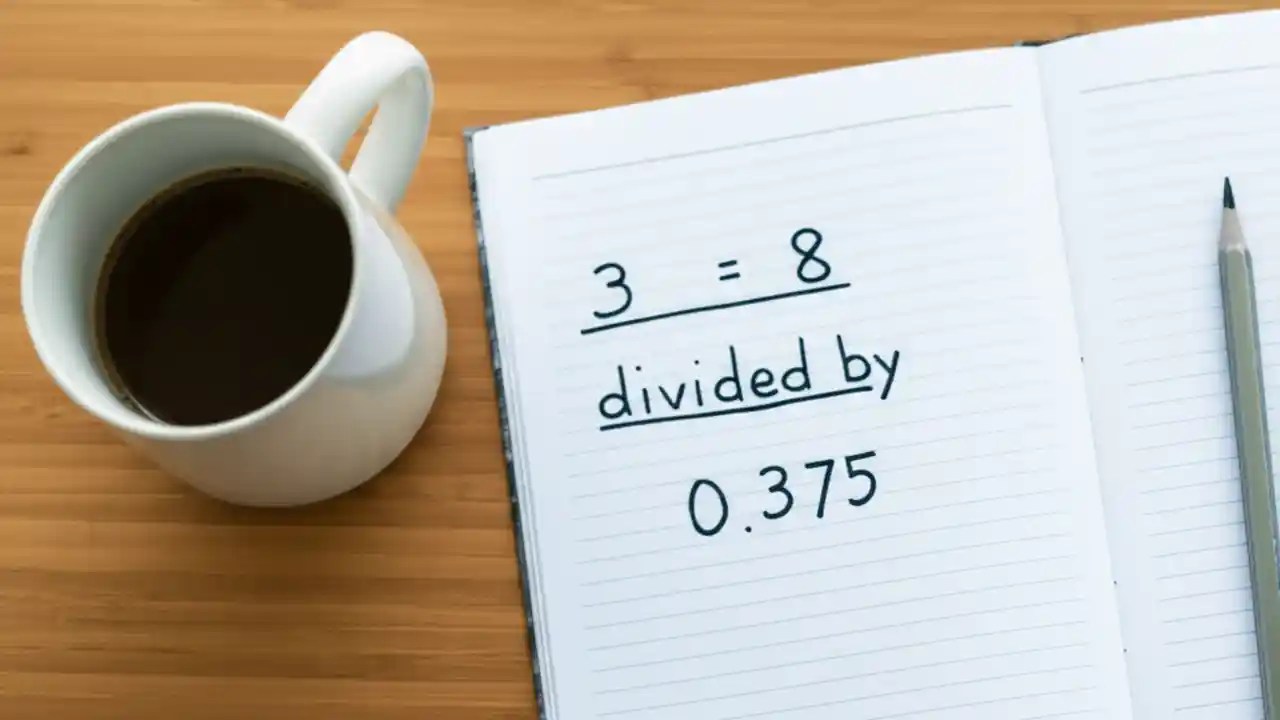 3 = 8
divided by
0.375